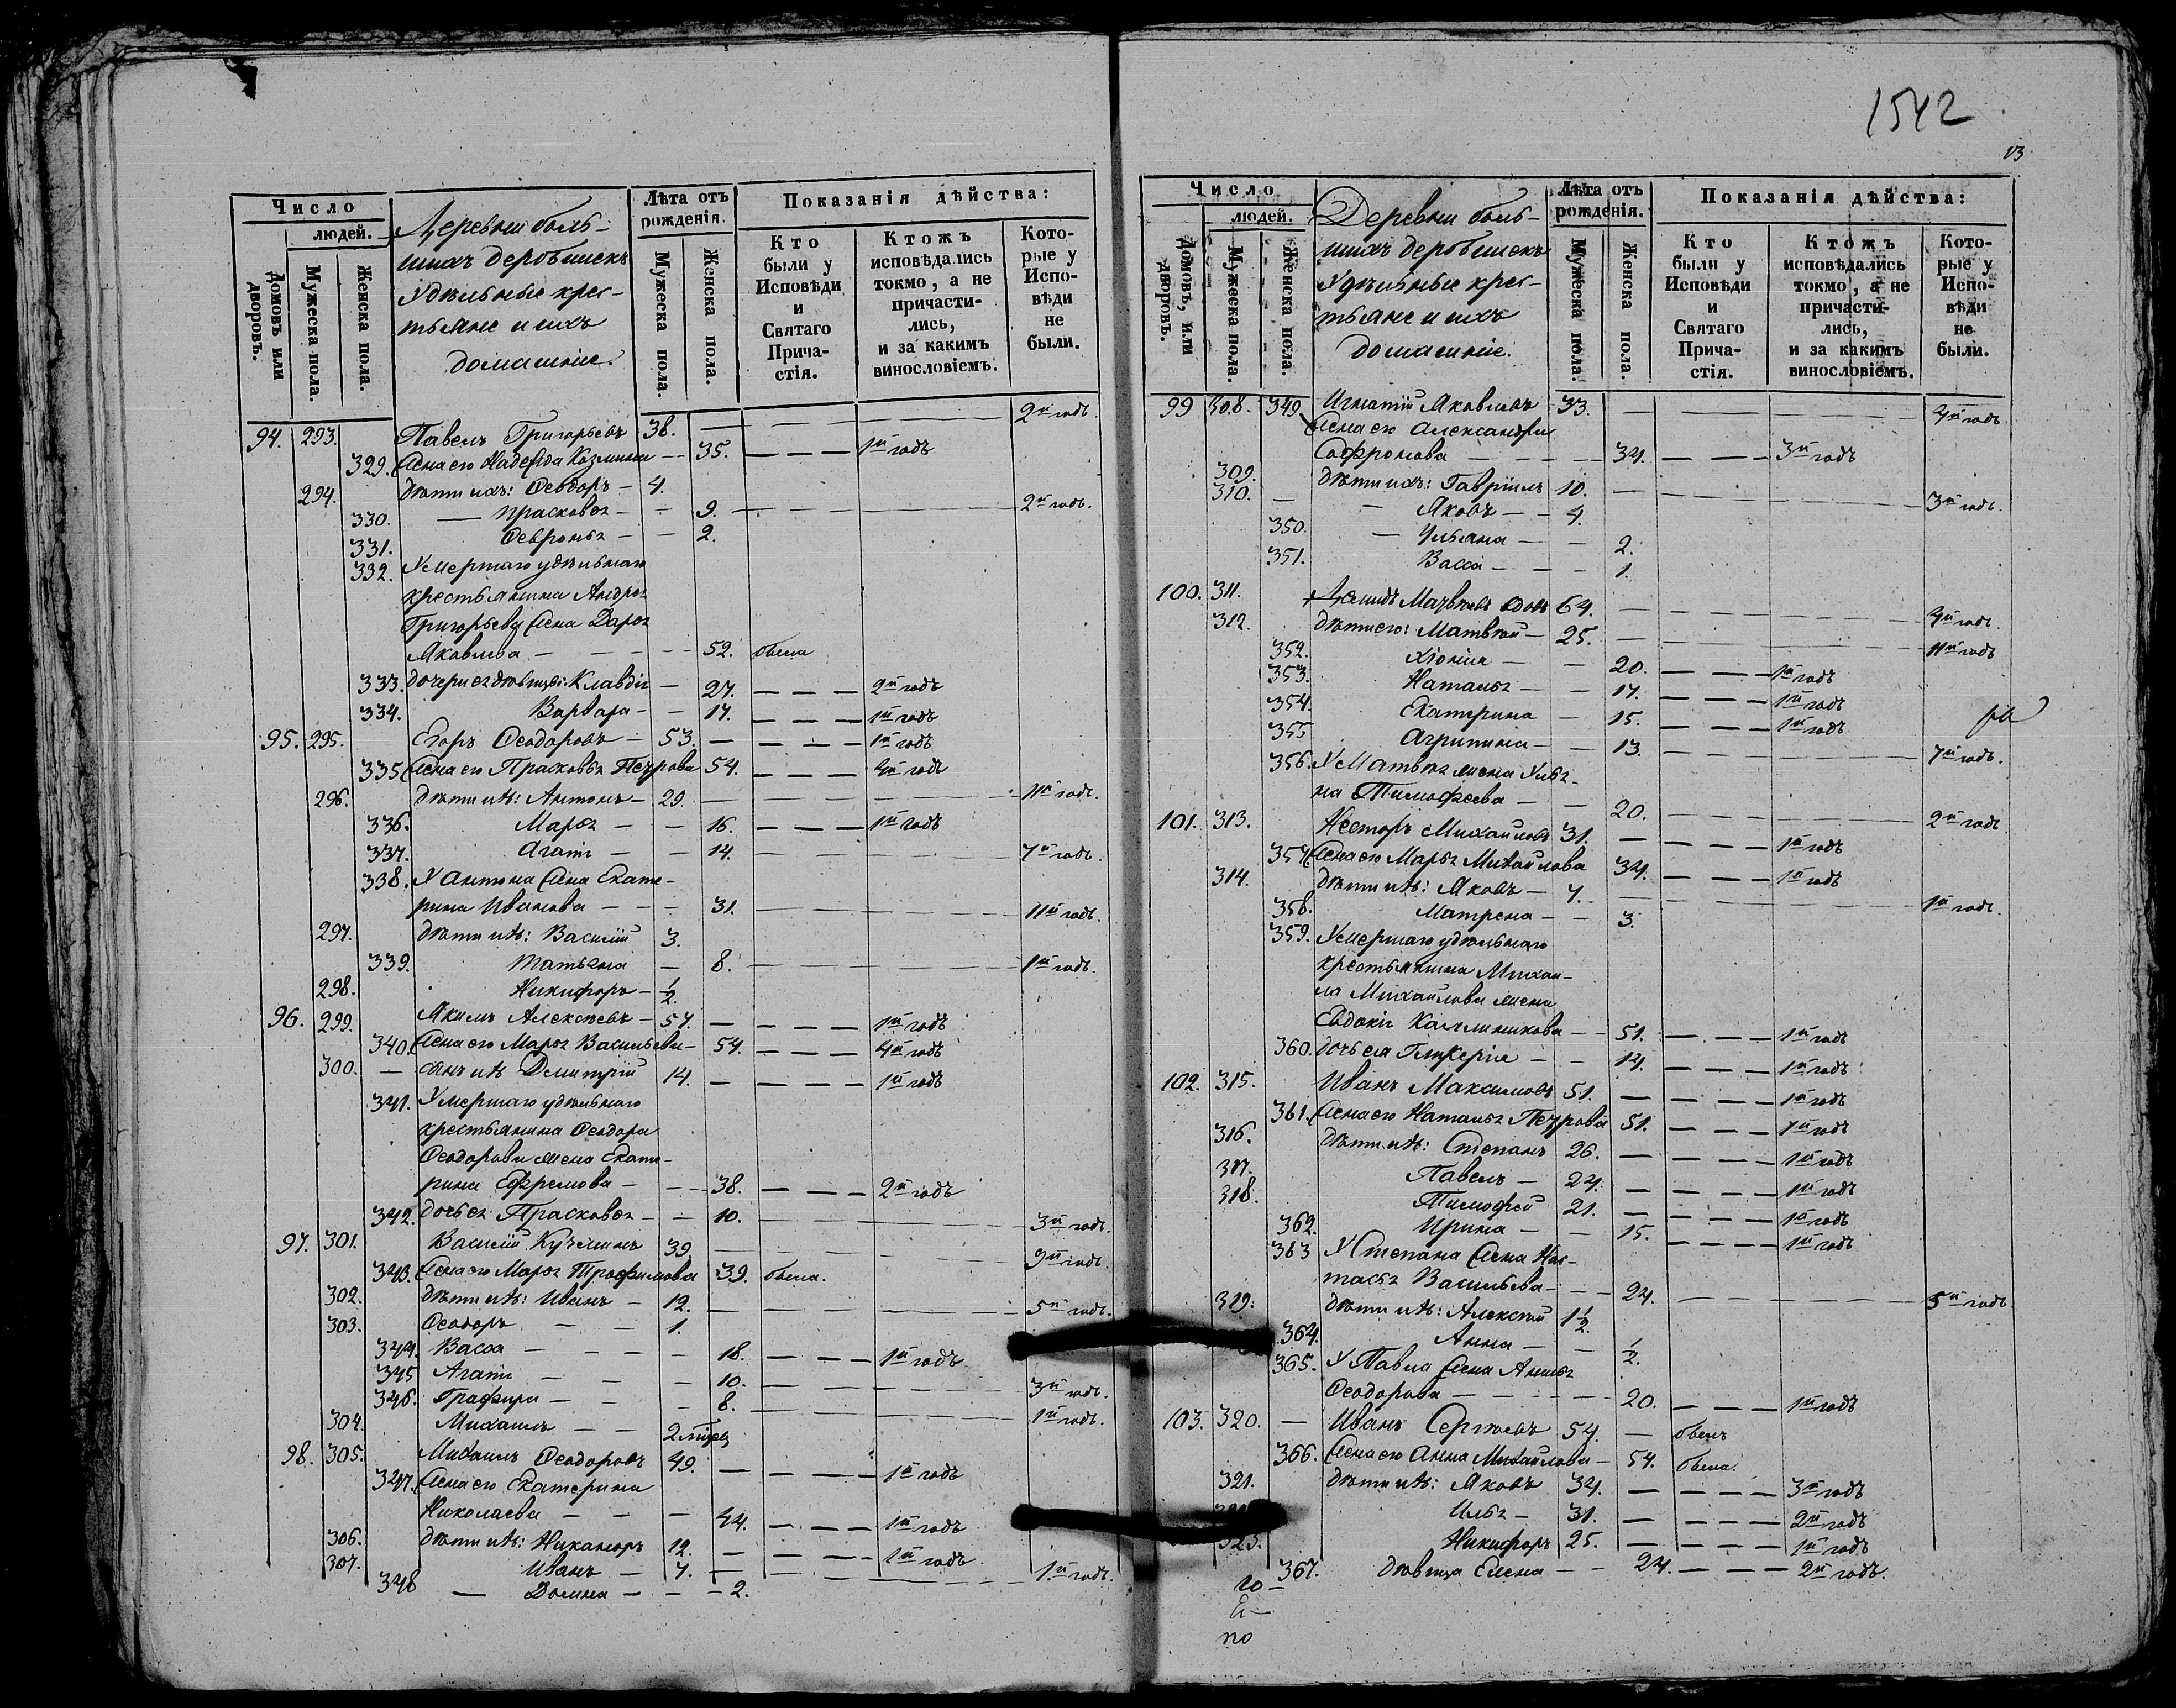 1542
13
Число
людей.
Домовъ или дворовъ.
Мужеска пола.
Женска пола.
Деревни боль-
шихъ дербышекъ
Удѣльные крес-
тьяне и ихъ
домашніе.
Лѣта отъ рожденія.
Мужеска пола.
Женска пола.
Показанія дѣйства:
Кто были у Исповѣди и Святаго Причастія.
Ктожъ исповѣдались токмо, а не причастились, и за какимъ винословіемъ.
Которые у Исповѣди не были.
94. 293. Павелъ Григорьевъ 38. 2й годъ.
329. Жена его Надежда Козмина 35. 1й годъ
294. дѣти ихъ: Ѳеодоръ 4.
330. Прасковья 9. 2й годъ.
331. Февронья 2.
332. Умершаго удѣльнаго
крестьянина Андрея
Григорьева жена Дарья
Яковлева 52. была
333. дочери ея дѣвицы: Клавдія 27. 2й годъ
334. Варвара 17. 1й годъ
95. 295. Егоръ Ѳеодоровъ 53. 1й годъ
335. Жена его Прасковья Петрова 54. 4й годъ
296. дѣти ихъ: Антонъ 29. 11й годъ.
336. Марья 16. 1й годъ
337. Агаѳія 14. 7й годъ.
338. У Антона жена Екате-
рина Иванова 31. 11й годъ.
297. дѣти ихъ: Василій 3.
339. Татьяна 8. 1й годъ.
298. Никифоръ ½.
96. 299. Якимъ Алексѣевъ 57. 1й годъ
340. Жена его Марья Васильева 54. 4й годъ
300. сынъ ихъ Димитрій 14. 1й годъ
341. Умершаго удѣльнаго
крестьянина Ѳеодора
Ѳеодорова жена Екате-
рина Ефремова 38. 2й годъ
342. дочь ея Прасковья 10. 3й годъ.
97. 301. Василій Кузминъ 39. 9й годъ.
343. Жена его Марья Трофимова 39. была.
302. дѣти ихъ: Иванъ 12. 5й годъ.
303. Ѳеодоръ 1.
344. Васса 18. 1й годъ
345 Агаѳія 10. 3й годъ.
346. Графира 8. 1й годъ.
304. Михаилъ 2
98. 305. Михаилъ Ѳеодоровъ 49. 1й годъ
347. Жена его Екатерина
Николаева 44. 1й годъ
306. дѣти ихъ: Никаноръ 12. 1й годъ
307. Иванъ 7. 1й годъ.
348 Домна 2.
Число
людей.
Домовъ, или дворовъ.
Мужеска пола.
Женска пола.
Деревни боль-
шихъ дербышекъ
Удѣльные крес-
тьяне и ихъ
домашніе.
Лѣта отъ рожденія.
Мужеска пола.
Женска пола.
Показанія дѣйства:
Кто были у Исповѣди и Святаго Причастія.
Ктожъ исповѣдались токмо, а не причастились, и за какимъ винословіемъ.
Которые у Исповѣди не были.
99 308. Игнатій Яковлевъ 33. 4й годъ
349 Жена его Александра
Софронова 34. 3й годъ
309. дѣти ихъ: Гавріилъ 10. 3й годъ.
310. Яковъ 4.
350. Ульяна 2.
351. Васса 1.
100. 311. Демидъ Матвѣевъ вдовъ 64. 4й годъ.
312. дѣти его: Матвѣй 25. 11й годъ
352. Хіонія 20. 1й годъ
353. Наталья 17. 1й годъ
354. Екатерина 15. 1й годъ
355 Агрипина 13. 7й годъ.
356. У Матвѣя жена Улья-
на Тимофеева 20. 2й годъ
101. 313. Несторъ Михайловъ 31. 1й годъ
357. Жена его Марья Михайлова 34. 1й годъ
314. дѣти ихъ: Яковъ 7. 1й годъ.
358. Матрена 3.
359. Умершаго удѣльнаго
крестьянина Михаи-
ла Михайлова жена
Евдокія Каллиникова 51. 1й годъ
360. дочь ея Гликерія 14. 1й годъ
102. 315. Иванъ Максимовъ 51. 1й годъ
361. Жена его Наталья Петрова 51. 1й годъ
316. дѣти ихъ: Степанъ 26. 1й годъ
317. Павелъ 24. 1й годъ
318. Тимофей 21. 1й годъ
362. Ирина 15. 1й годъ
363 У Степана жена Нас-
тасья Васильева 24. 5й годъ.
319. дѣти ихъ: Алексѣй 1½.
364. Анна ½.
365. У Павла жена Анисья
Ѳеодорова 20. 1й годъ
103. 320. Иванъ Сергѣевъ 54. былъ
366. Жена его Анна Михайлова 54. была.
321. дѣти ихъ: Яковъ 34. 3й годъ
Илья 31. 2й годъ
323. Никифоръ 25. 1й годъ
367. дѣвица Елена 24. 2й годъ.
го
по